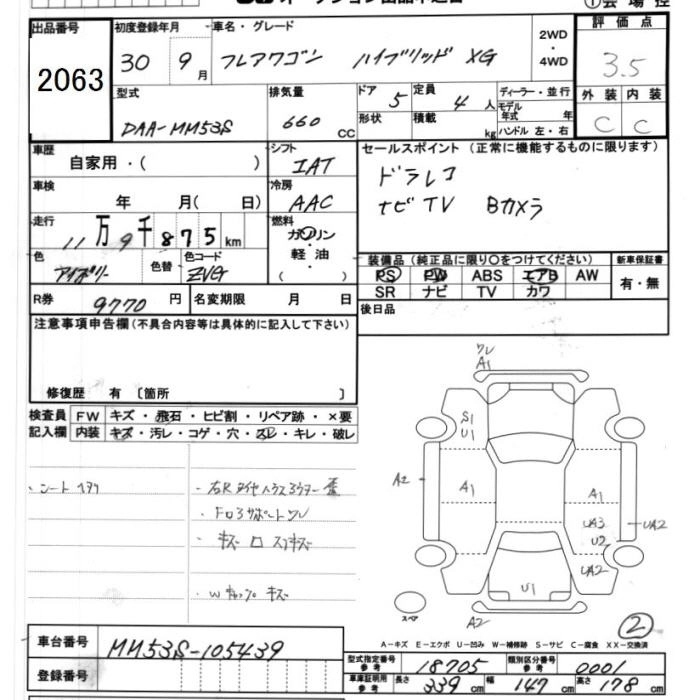 出品番号 初度登録年月 車名・グレード 2WD・4WD 評価点
2063 30 9月 フレアワゴン ハイブリッド XG 3.5
型式 排気量 ドア 定員 ディーラー・並行 外装 内装
DAA-MM53S 660 CC 5 4人 モデル年式 年 C C
形状 積載 kg ハンドル 左・右
車歴 シフト セールスポイント(正常に機能するものに限ります)
自家用・( ) IAT ドラレコ
車検 冷房 ナビTV Bカメラ
年 月( 日) AAC
走行 燃料
11万9千875km ガソリン・軽油
色 色替 色コード ( )
アイボリー ZVG
装備品(純正品に限り○をつけてください) 新車保証書
PS PW ABS エアB AW 有・無
SR ナビ TV カワ
R券 9770円 名変期限 月 日 後日品
注意事項申告欄(不具合内容等は具体的に記入して下さい)
修復歴 有 〔箇所 〕
検査員記入欄 FW キズ・飛石・ヒビ割・リペア跡・×要
内装 キズ・汚レ・コゲ・穴・スレ・キレ・破レ
ワレ
A1
S1
U1
A2 A1 A1
UA3 UA2
U2
UA2
U1
スペア A2
・F口3サポートワレ
・キズ ロ スリキズ
・Wキャップ キズ
②
A-キズ E-エクボ U-凹み W-補修跡 S-サビ C-腐食 XX-交換済
車台番号 MM53S-105439
登録番号
型式指定番号 参考 18705 類別区分番号 参考 0001
車庫証明用 参考 長さ 339cm 幅 147cm 高さ 178cm